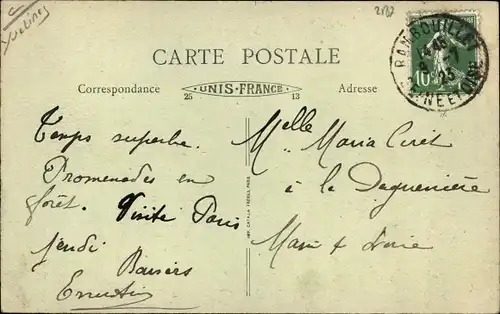 Yvelines
2887
CARTE POSTALE
Correspondance
UNIS-FRANCE
25 13
Adresse
RAMBOUILLET
25
SEINE ET OISE
10
Temps superbe.
Promenades en
forêt. Visite Paris
jeudi
Baisers
Melle Maria
à la Daguenière
Maine & Loire
IMP. CATALA FRÈRES, PARIS